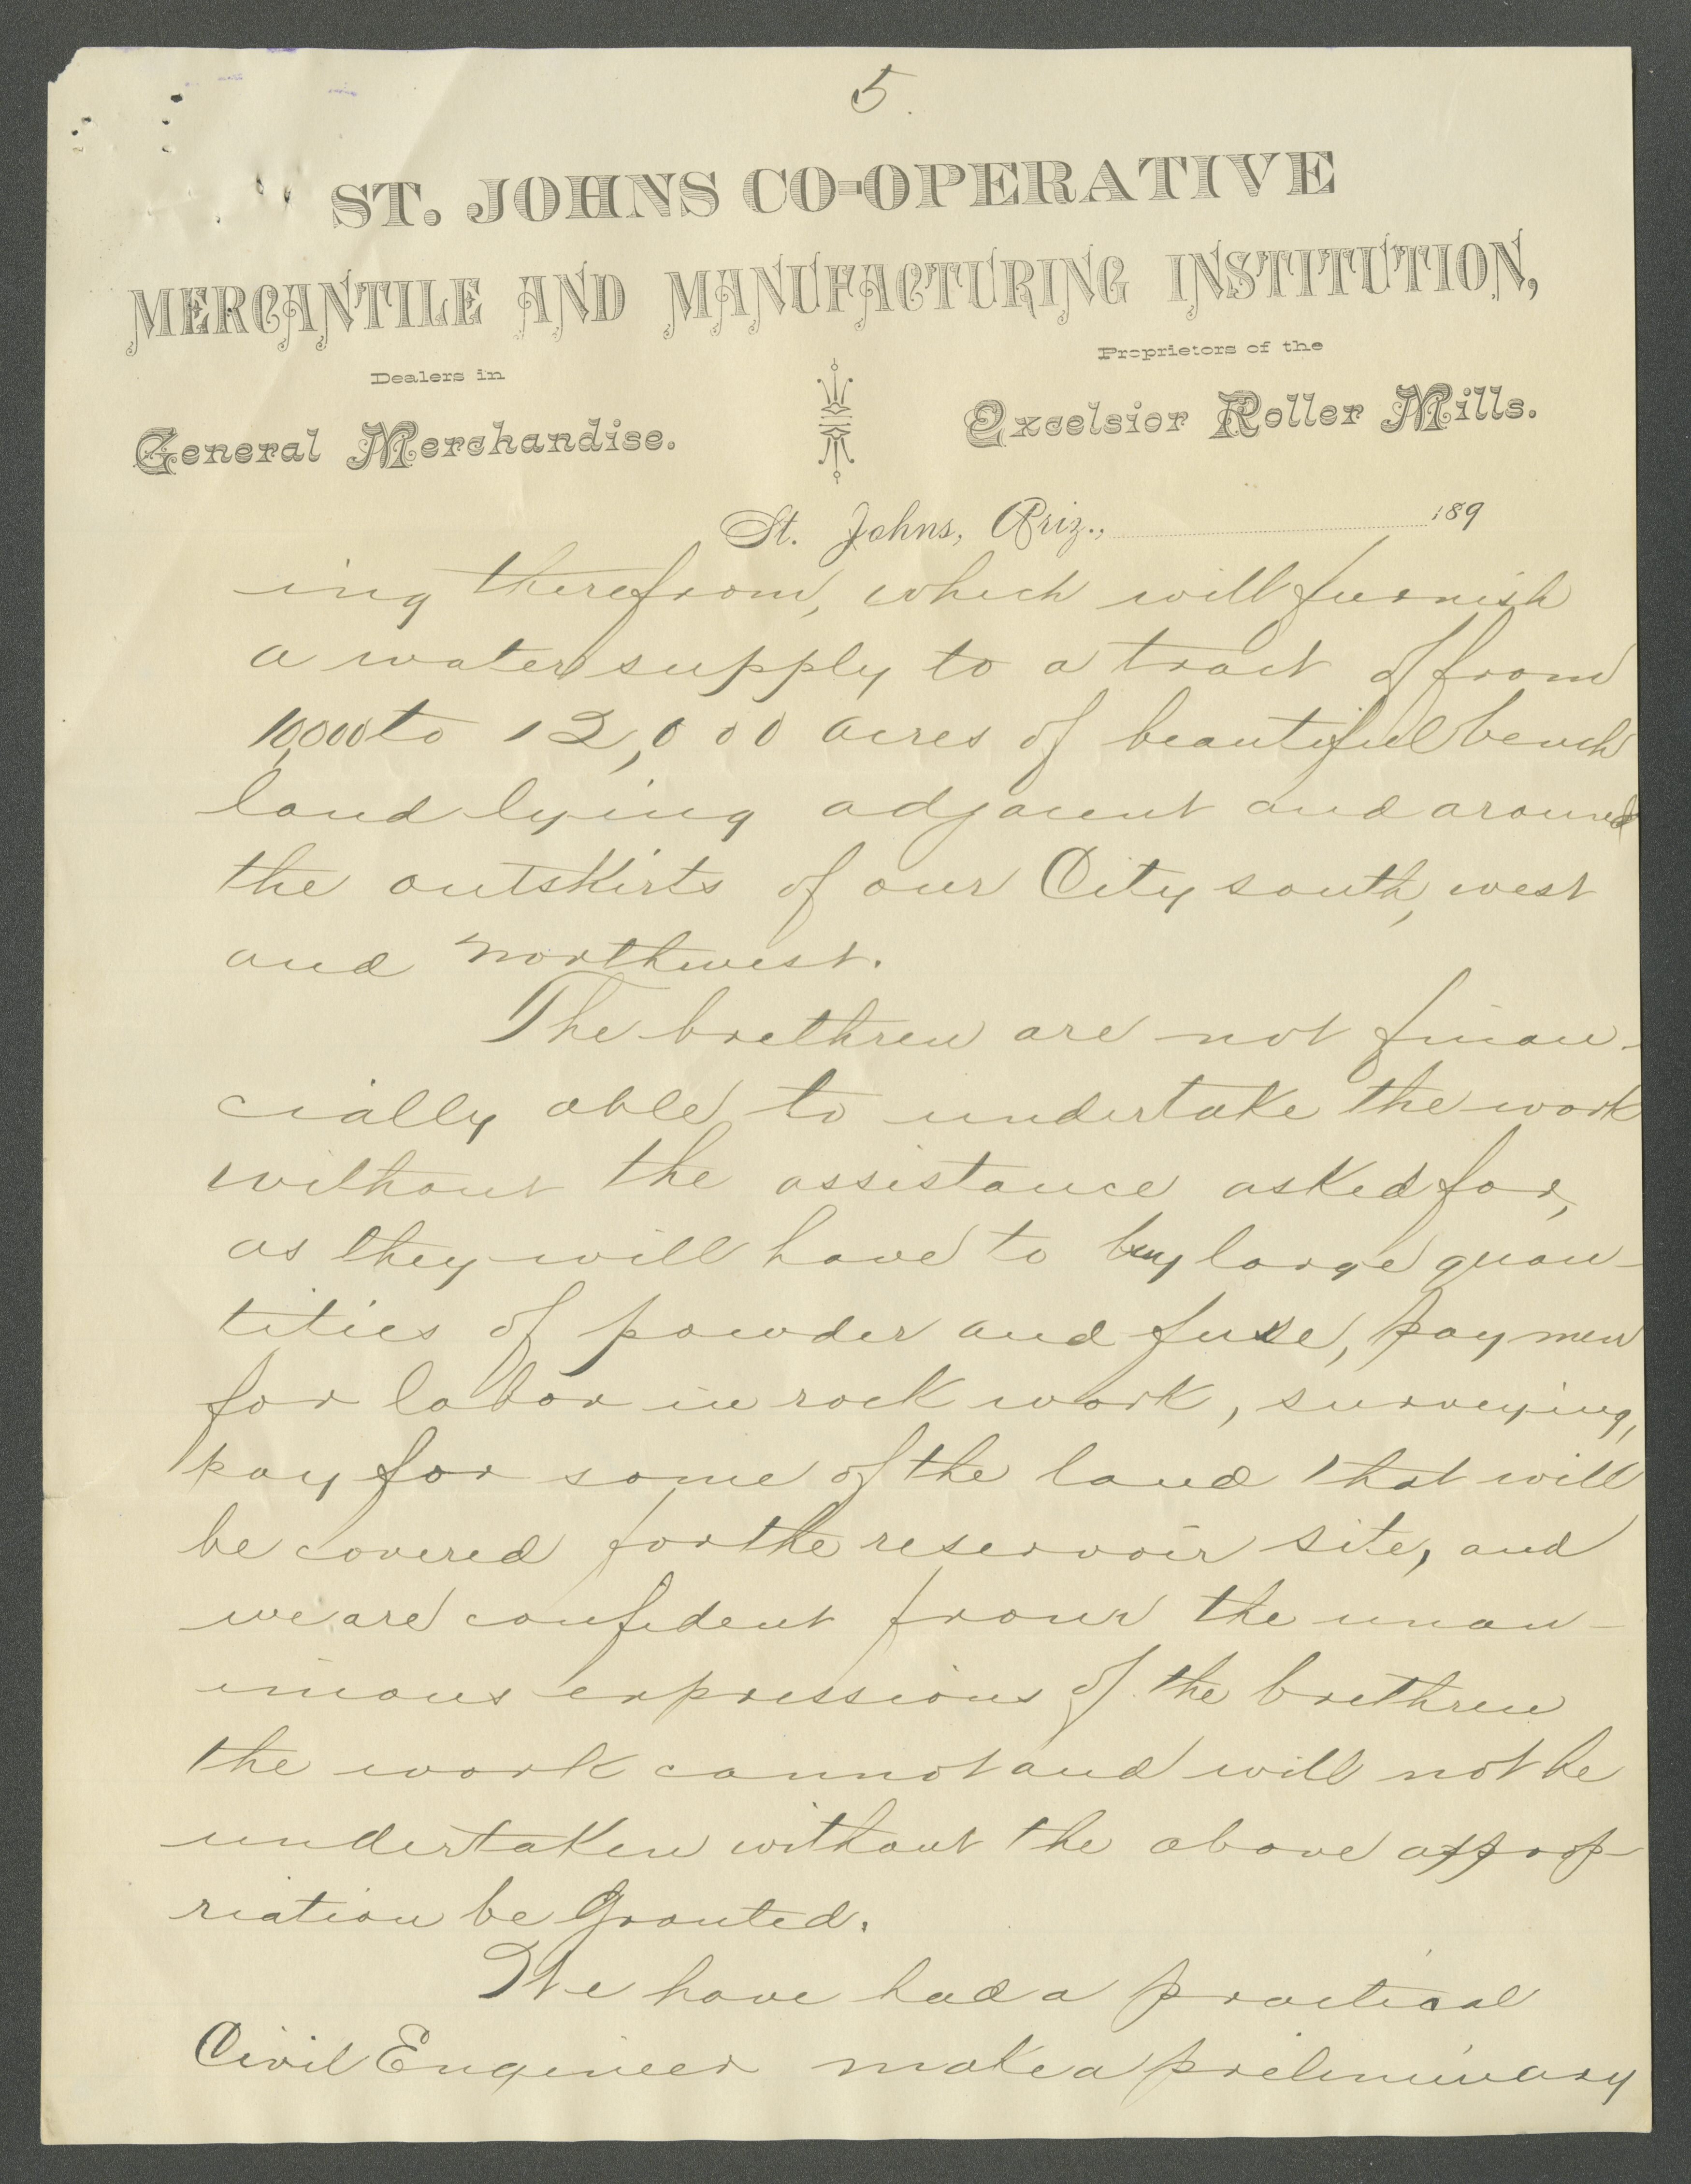 5.
ST. JOHNS CO-OPERATIVE
MERCANTILE AND MANUFACTURING INSTITUTION,
Dealers in
General Merchandise.
Proprietors of the
Excelsior Roller Mills.
St. Johns, Ariz., 189
ing therefrom, which will furnish
a water supply to a tract of from
10,000 to 12,000 acres of beautiful bench
land lying adjacent and around
the outskirts of our City south, west
and northwest.
The brethren are not finan-
cially able to undertake the work
without the assistance asked for,
as they will have to buy large quan-
tities of powder and fuse, pay men
for labor in rock work, surveying,
pay for some of the land that will
be covered for the reservoir site, and
we are confident from the unan-
imous expressions of the brethren
the work cannot and will not be
undertaken without the above approp-
riation be granted.
We have had a practical
Civil Engineer make a preliminary